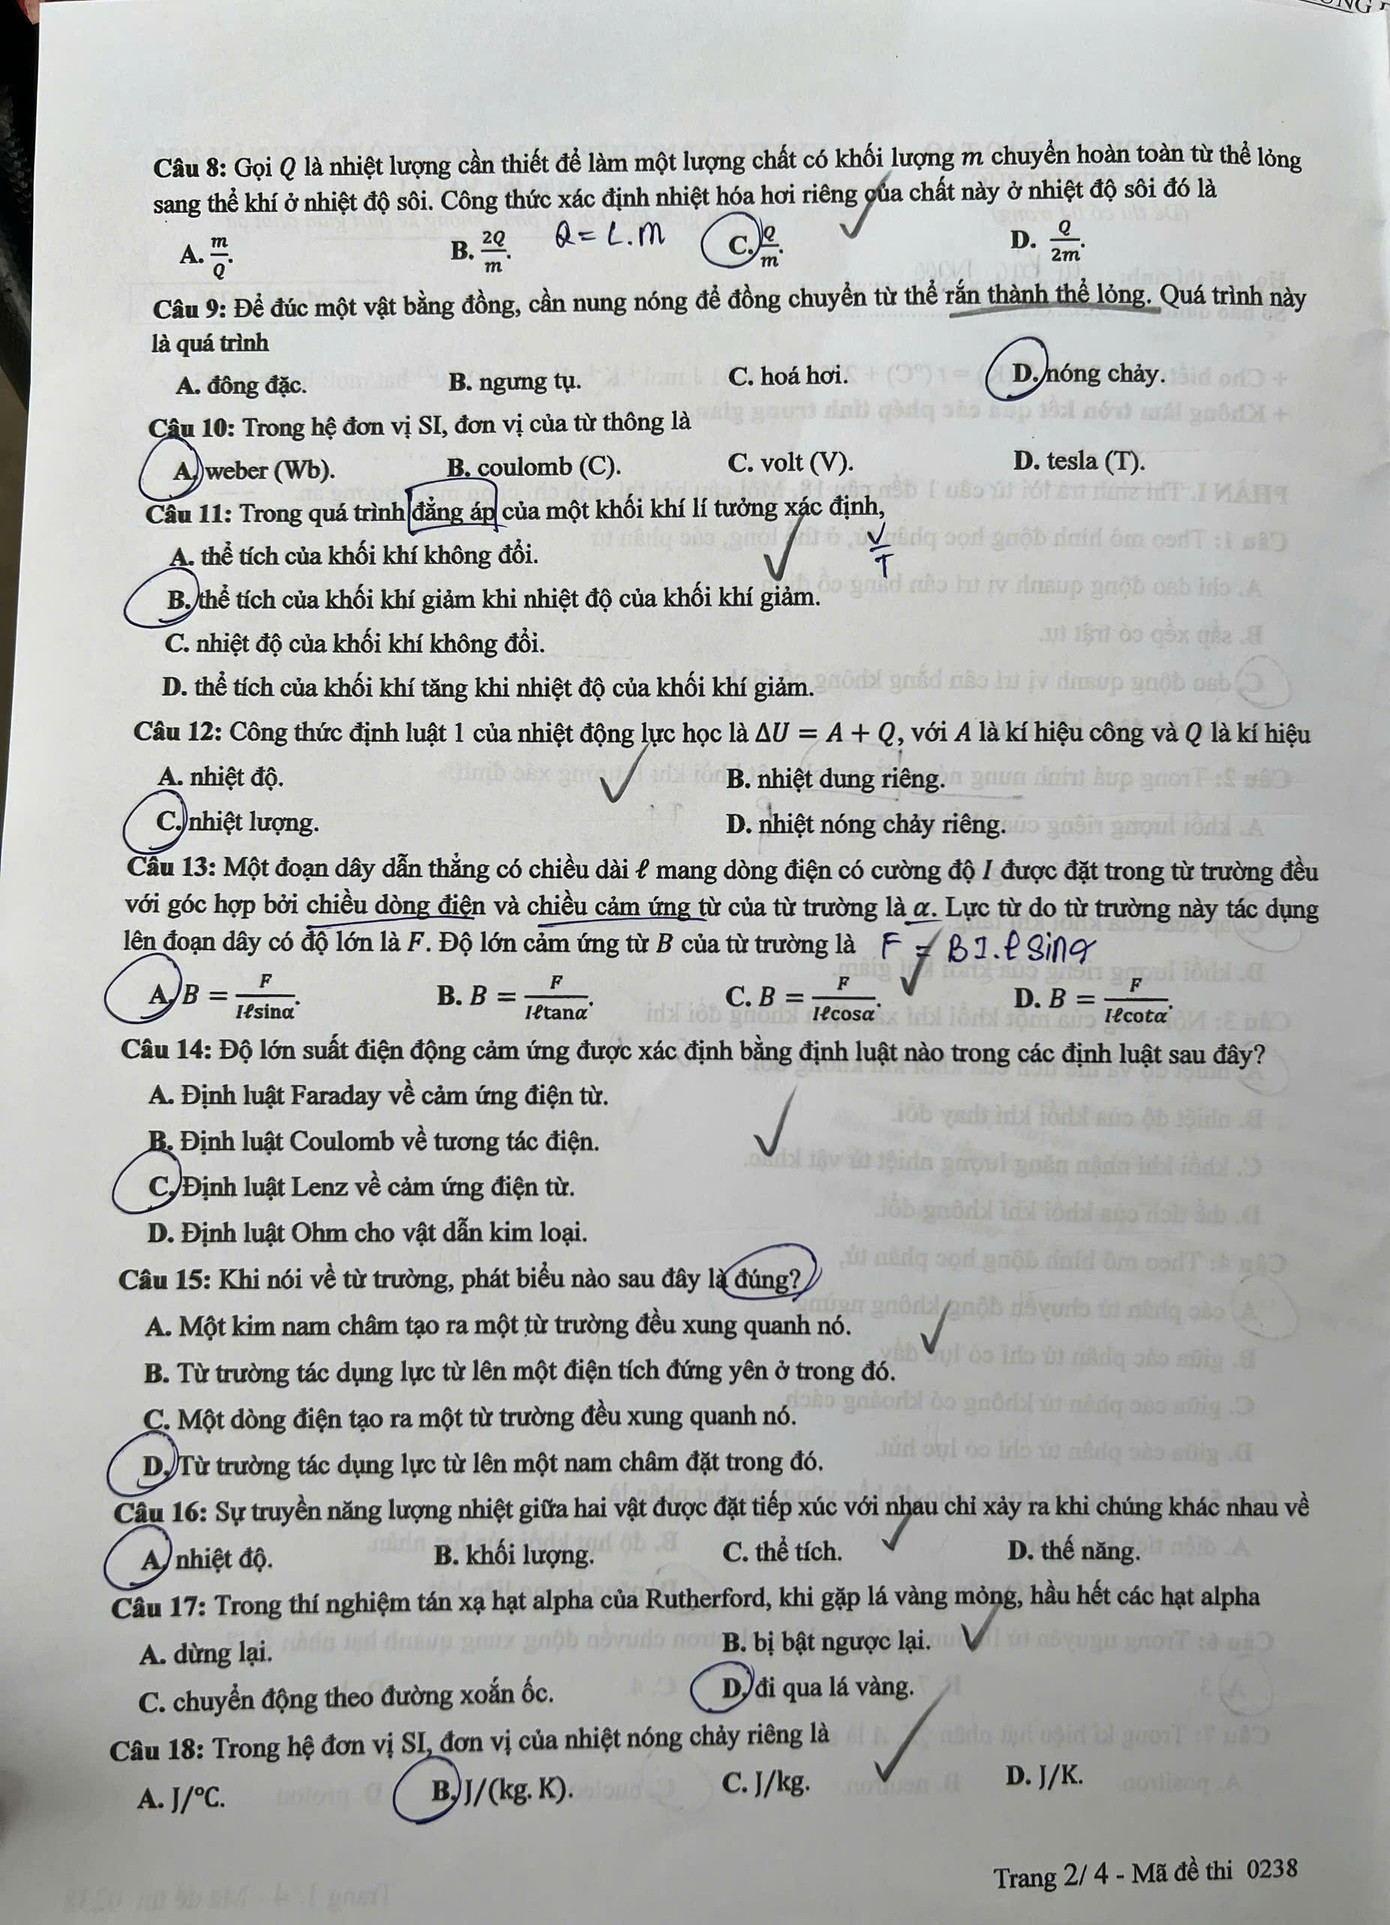 Câu 8: Gọi Q là nhiệt lượng cần thiết để làm một lượng chất có khối lượng m chuyển hoàn toàn từ thể lỏng
sang thể khí ở nhiệt độ sôi. Công thức xác định nhiệt hóa hơi riêng của chất này ở nhiệt độ sôi đó là
A. m/Q. B. 2Q/m. Q = L.m C. Q/m. D. Q/2m.
Câu 9: Để đúc một vật bằng đồng, cần nung nóng để đồng chuyển từ thể rắn thành thể lỏng. Quá trình này
là quá trình
A. đông đặc. B. ngưng tụ. C. hoá hơi. D. nóng chảy.
Câu 10: Trong hệ đơn vị SI, đơn vị của từ thông là
A. weber (Wb). B. coulomb (C). C. volt (V). D. tesla (T).
Câu 11: Trong quá trình đẳng áp của một khối khí lí tưởng xác định,
V/T
A. thể tích của khối khí không đổi.
B. thể tích của khối khí giảm khi nhiệt độ của khối khí giảm.
C. nhiệt độ của khối khí không đổi.
D. thể tích của khối khí tăng khi nhiệt độ của khối khí giảm.
Câu 12: Công thức định luật 1 của nhiệt động lực học là ΔU = A + Q, với A là kí hiệu công và Q là kí hiệu
A. nhiệt độ. B. nhiệt dung riêng.
C. nhiệt lượng. D. nhiệt nóng chảy riêng.
Câu 13: Một đoạn dây dẫn thẳng có chiều dài ℓ mang dòng điện có cường độ I được đặt trong từ trường đều
với góc hợp bởi chiều dòng điện và chiều cảm ứng từ của từ trường là α. Lực từ do từ trường này tác dụng
lên đoạn dây có độ lớn là F. Độ lớn cảm ứng từ B của từ trường là F = BI.ℓ sinα
A. B = F/Iℓsinα. B. B = F/Iℓtanα. C. B = F/Iℓcosα. D. B = F/Iℓcotα.
Câu 14: Độ lớn suất điện động cảm ứng được xác định bằng định luật nào trong các định luật sau đây?
A. Định luật Faraday về cảm ứng điện từ.
B. Định luật Coulomb về tương tác điện.
C. Định luật Lenz về cảm ứng điện từ.
D. Định luật Ohm cho vật dẫn kim loại.
Câu 15: Khi nói về từ trường, phát biểu nào sau đây là đúng?
A. Một kim nam châm tạo ra một từ trường đều xung quanh nó.
B. Từ trường tác dụng lực từ lên một điện tích đứng yên ở trong đó.
C. Một dòng điện tạo ra một từ trường đều xung quanh nó.
D. Từ trường tác dụng lực từ lên một nam châm đặt trong đó.
Câu 16: Sự truyền năng lượng nhiệt giữa hai vật được đặt tiếp xúc với nhau chỉ xảy ra khi chúng khác nhau về
A. nhiệt độ. B. khối lượng. C. thể tích. D. thế năng.
Câu 17: Trong thí nghiệm tán xạ hạt alpha của Rutherford, khi gặp lá vàng mỏng, hầu hết các hạt alpha
A. dừng lại. B. bị bật ngược lại.
C. chuyển động theo đường xoắn ốc. D. đi qua lá vàng.
Câu 18: Trong hệ đơn vị SI, đơn vị của nhiệt nóng chảy riêng là
A. J/°C. B. J/(kg. K). C. J/kg. D. J/K.
Trang 2/ 4 - Mã đề thi 0238